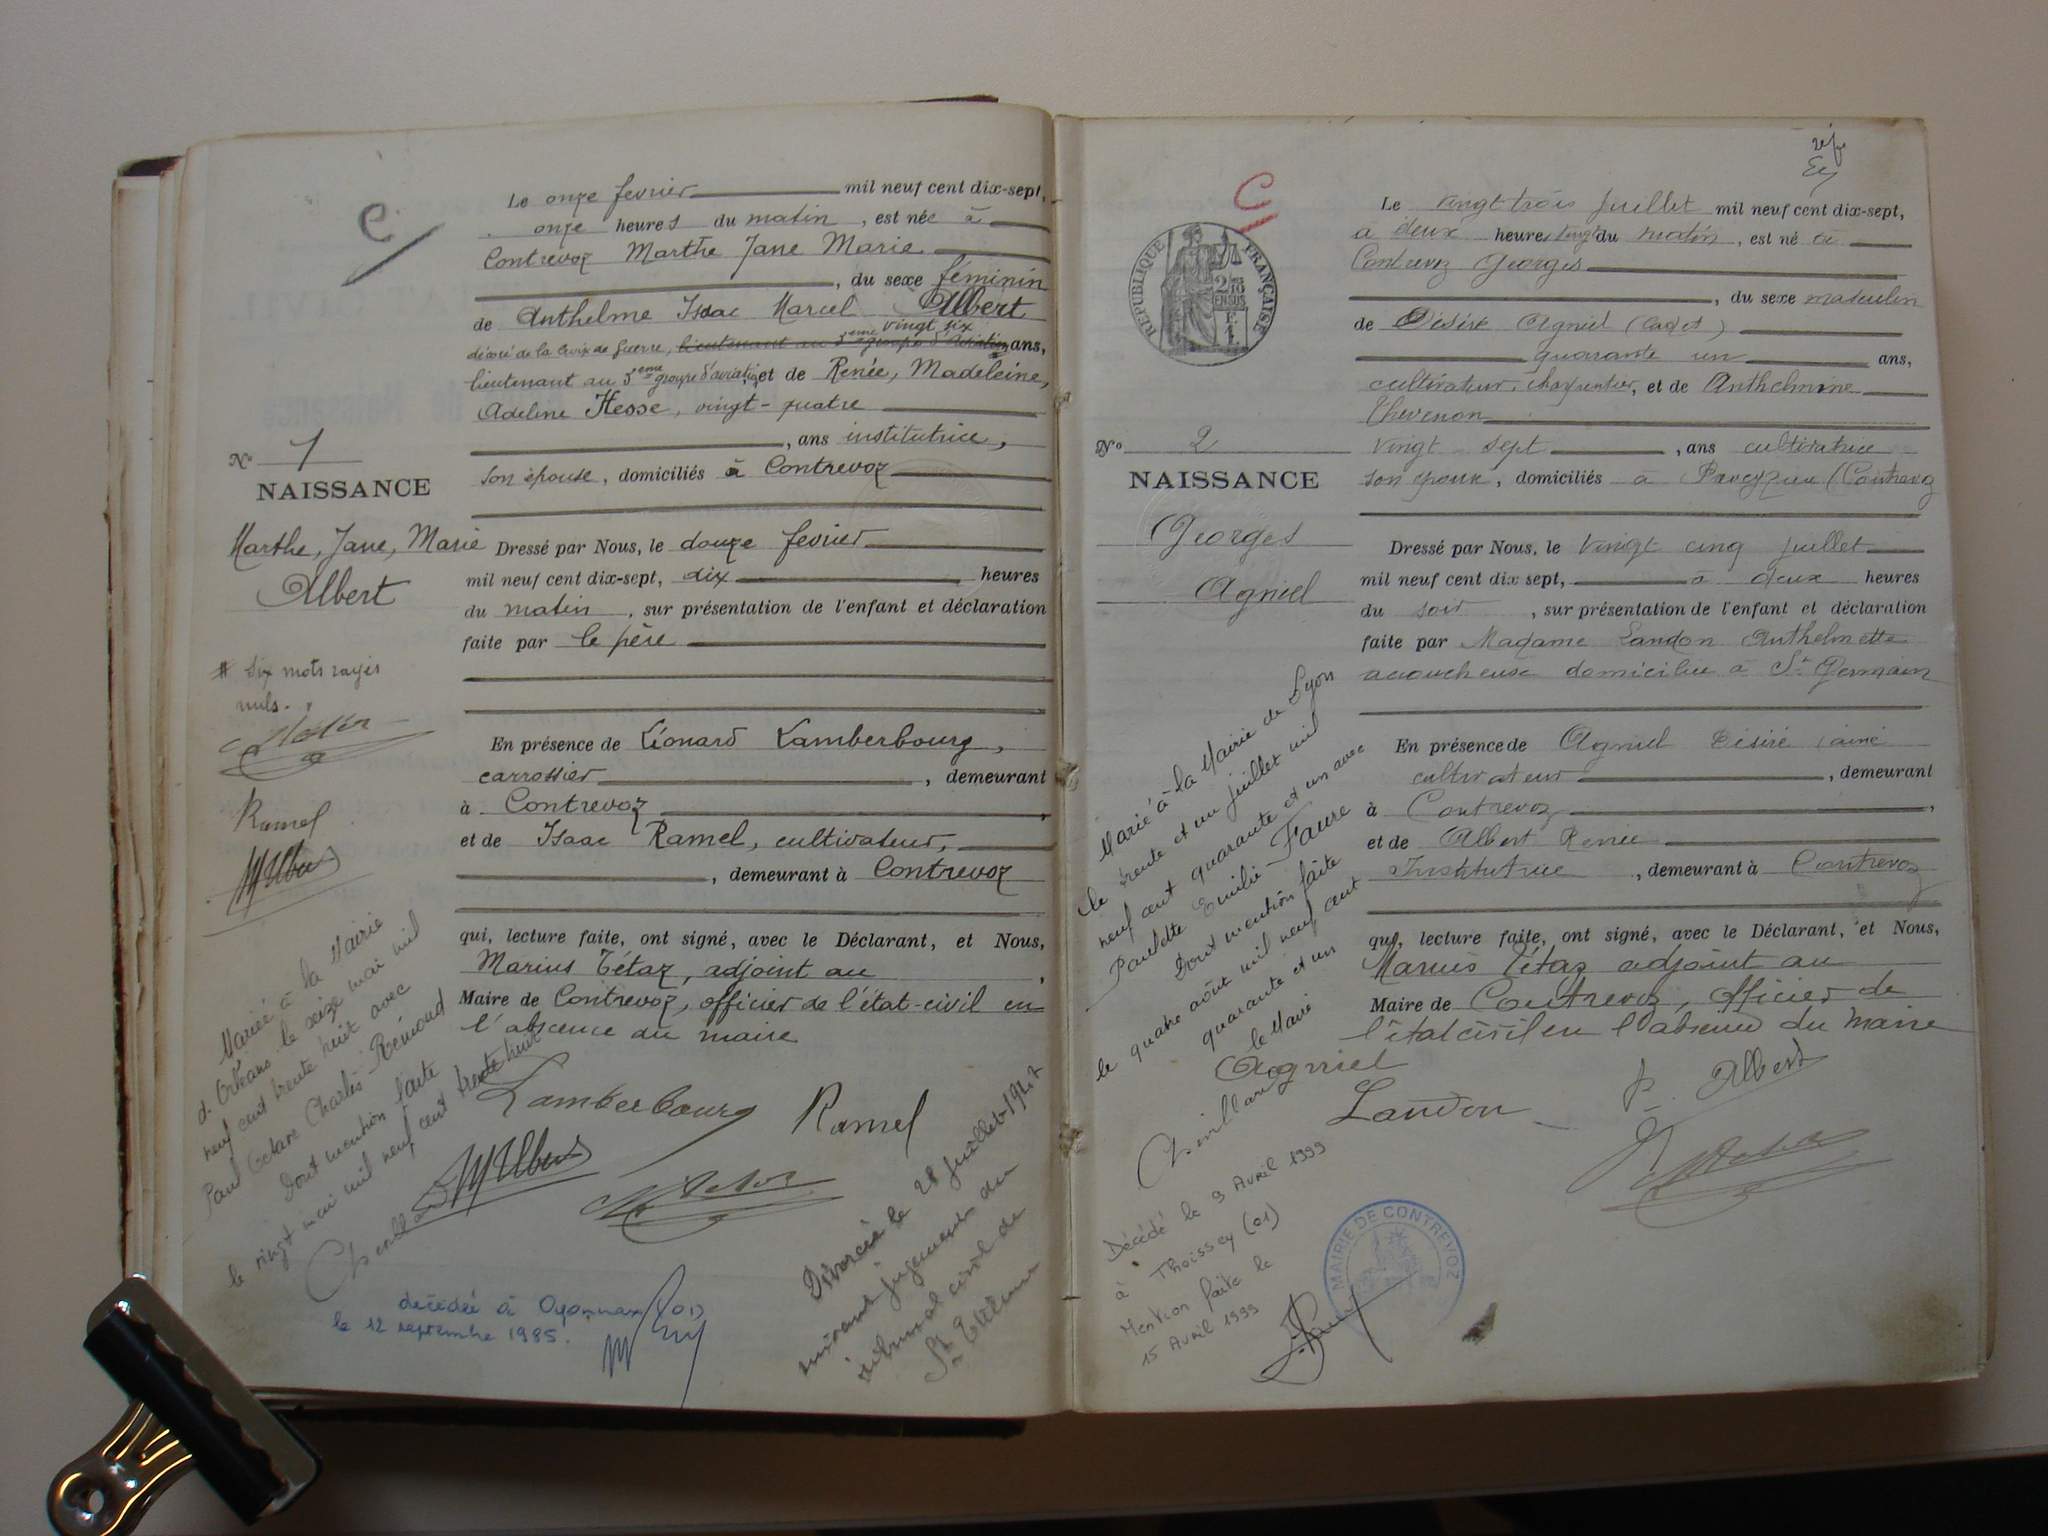 Le onze fevrier mil neuf cent dix-sept,
onze heures du matin, est née à
Contrevoz Marthe Jane Marie
, du sexe féminin
de Anthelme Isaac Marcel Albert
vingt six
décoré de la Croix de Guerre, lieutenant au 5eme groupe d'aviation ans,
lieutenant au 5eme groupe d'aviation, et de Renée, Madeleine,
Adeline Hesse, vingt-quatre
, ans institutrice,
son épouse, domiciliés à Contrevoz
C
N° 1
NAISSANCE
Marthe, Jane, Marie
Albert
Dressé par Nous, le douze fevrier
mil neuf cent dix-sept, dix heures
du matin, sur présentation de l'enfant et déclaration
faite par le père
# Six mots rayés
nuls.
Ramel
En présence de Léonard Lamberbourg,
carrossier, demeurant
à Contrevoz,
et de Isaac Ramel, cultivateur,
, demeurant à Contrevoz
qui, lecture faite, ont signé, avec le Déclarant, et Nous,
Marius Tétaz, adjoint au,
Maire de Contrevoz, officier de l'état-civil en
l'absence du maire
Lamberbourg Ramel
Mariée à la Mairie
d'Orléans le seize mai mil
neuf cent trente huit avec
Paul Octave Charles Rémond
Dont mention faite
le vingt mai mil neuf cent trente huit
Divorcée le 28 juillet 1947
suivant jugement du
tribunal civil de
St Etienne
décédée à Oyonnax (01)
le 12 septembre 1985.
C
RÉPUBLIQUE FRANÇAISE
Le vingt trois juillet mil neuf cent dix-sept,
a deux heures vingt du matin, est né à
Contrevoz Georges
, du sexe masculin
de Désiré Agniel (Cadet)
quarante un ans,
cultivateur, charpentier, et de Anthelmine
Thevenon
vingt sept, ans cultivatrice
son épouse, domiciliés à Preveyzieu (Contrevoz
N° 2
NAISSANCE
Georges
Agniel
Dressé par Nous, le vingt cinq juillet
mil neuf cent dix sept, à deux heures
du soir, sur présentation de l'enfant et déclaration
faite par Madame Landon Anthelmette
accoucheuse domiciliée à St Germain
En présence de Agniel Désiré ainé
cultivateur, demeurant
à Contrevoz,
et de Albert Renée
Institutrice, demeurant à Contrevoz
qui, lecture faite, ont signé, avec le Déclarant, et Nous,
Marius Tétaz adjoint au
Maire de Contrevoz, officier de
l'état civil en l'absence du maire
Agniel
Landon
R Albert
Marié à la Mairie de Lyon
le trente et un juillet mil
neuf cent quarante et un avec
Paulette Emilie Faure
Dont mention faite
le quatre août mil neuf cent
quarante et un
le Maire
Décédé le 9 Avril 1999
à Thoissey (01)
Mention faite le
15 Avril 1999
MAIRIE DE CONTREVOZ